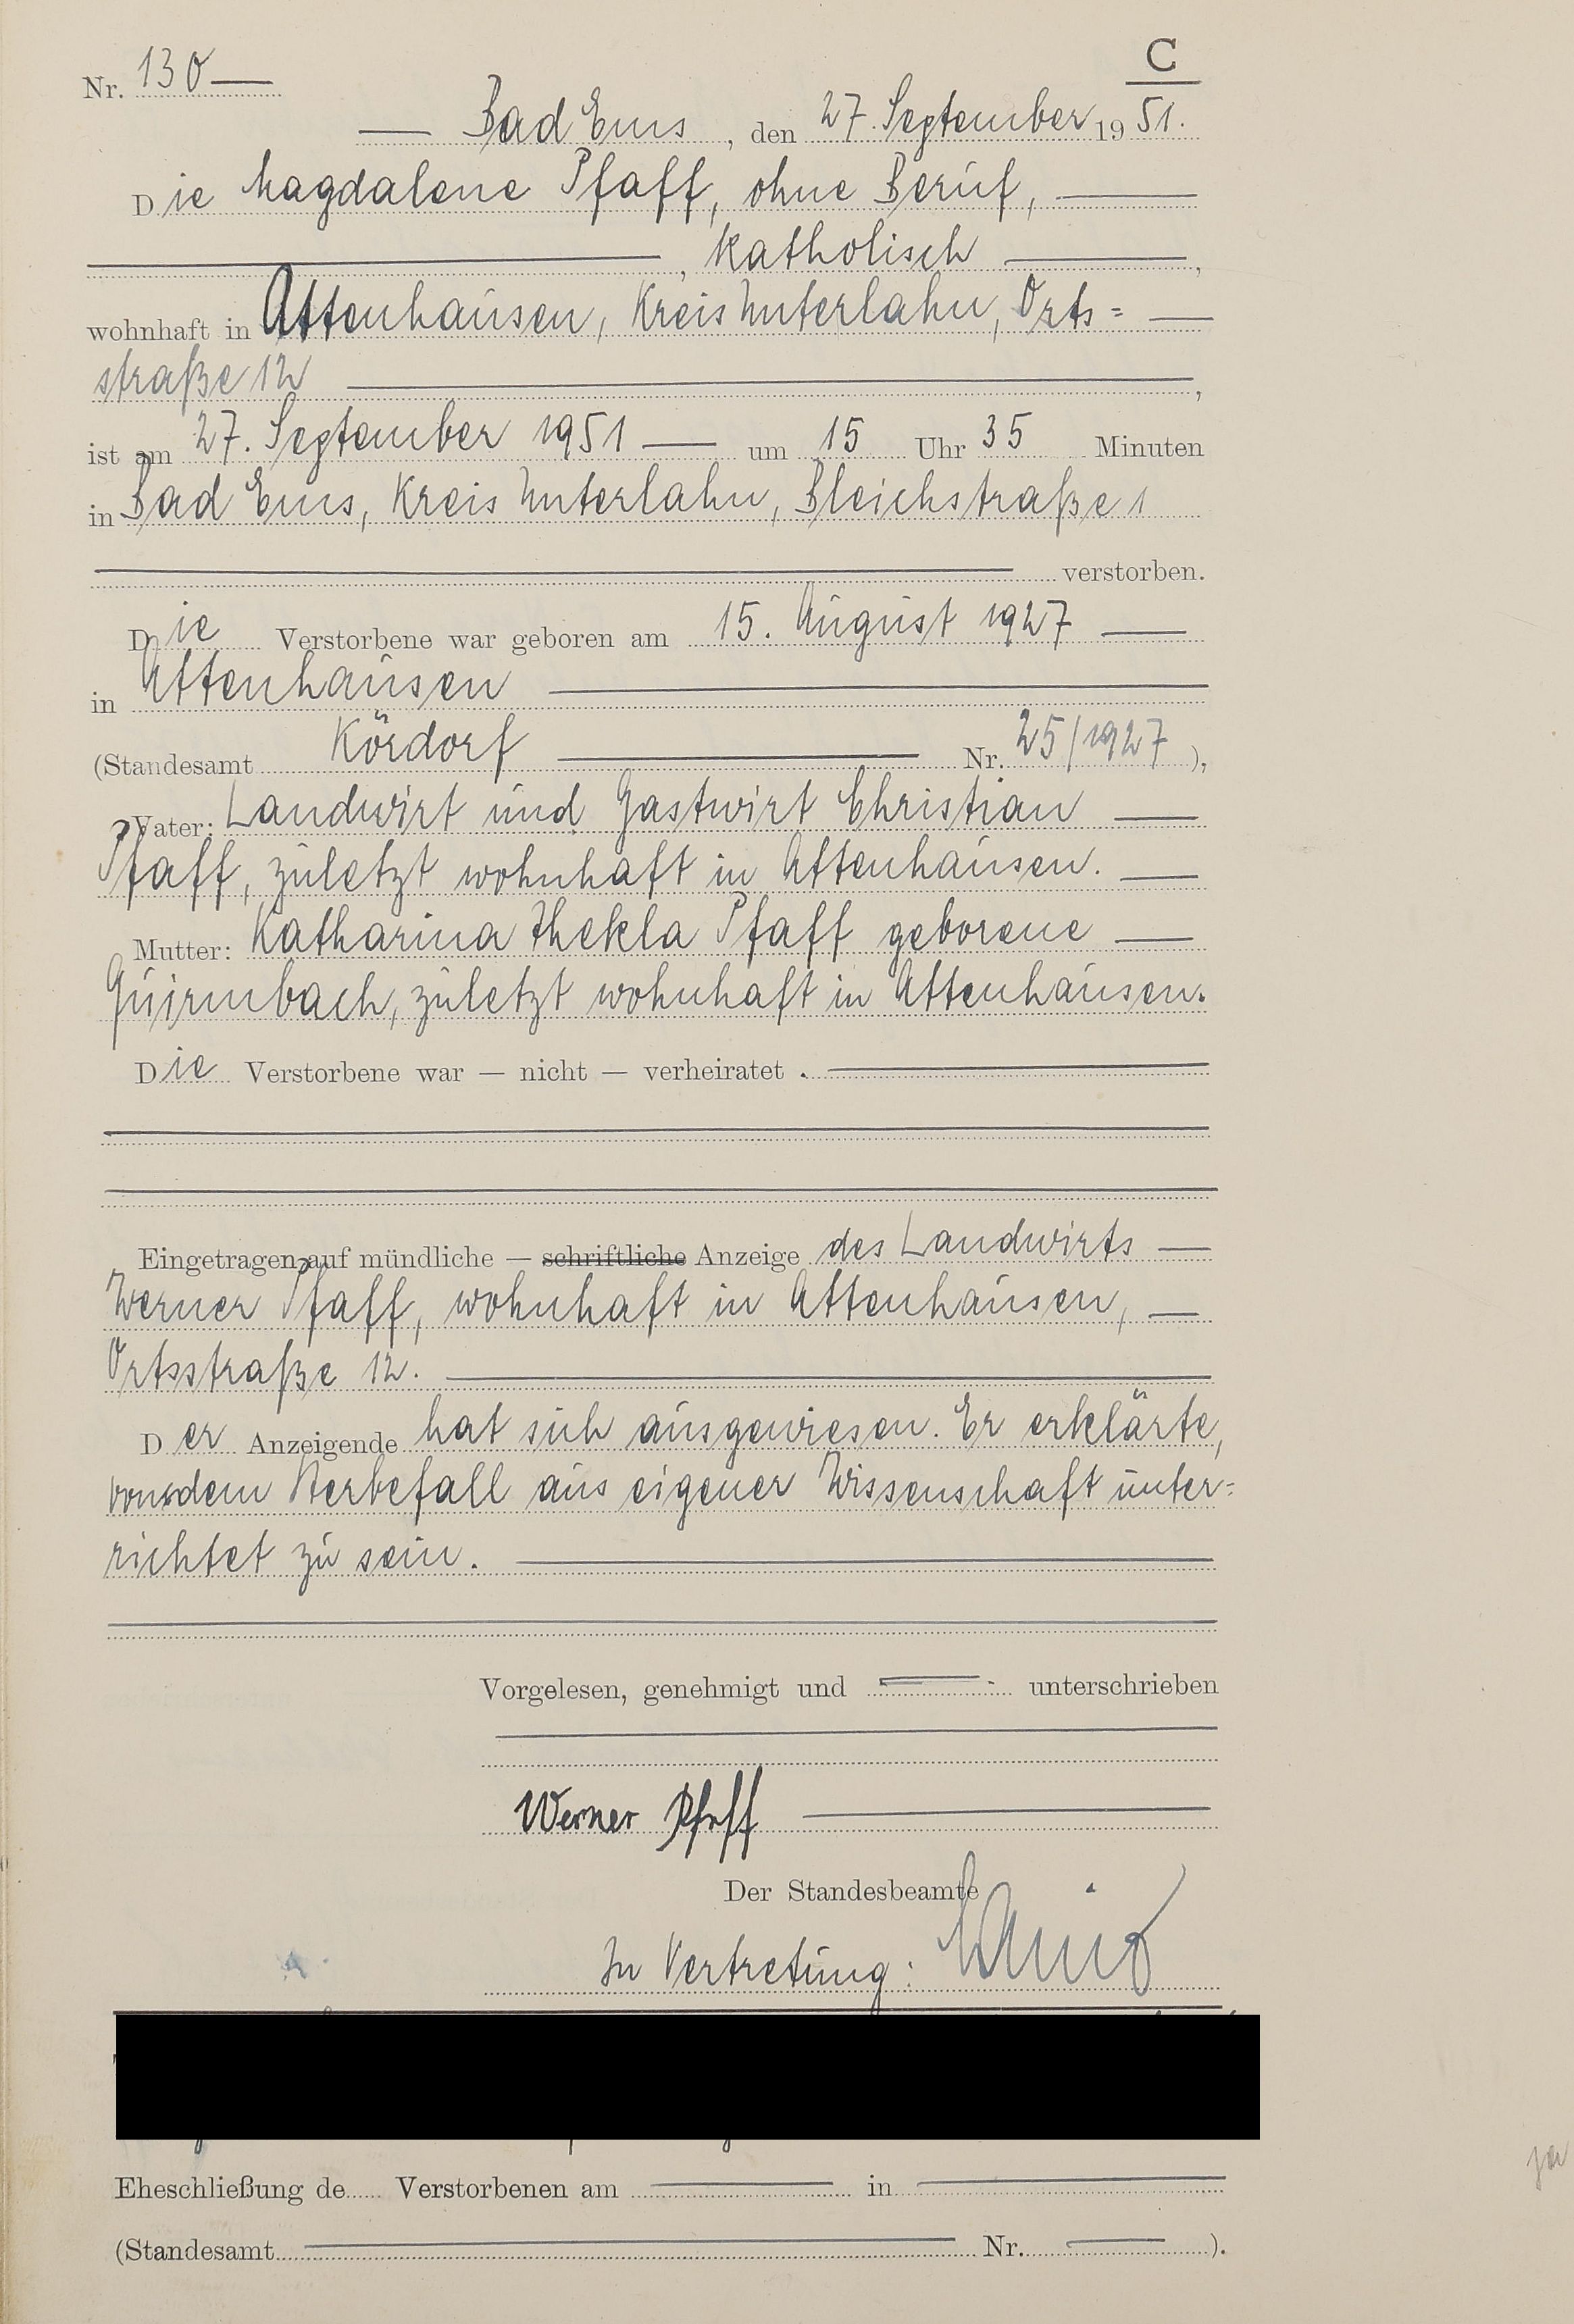 C
Nr. 130
Bad Ems, den 27. September 1951.
Die Magdalene Pfaff, ohne Beruf,
, katholisch ,
wohnhaft in Attenhausen, Kreis Unterlahn, Orts=
straße 12 ,
ist am 27. September 1951 um 15 Uhr 35 Minuten
in Bad Ems, Kreis Unterlahn, Bleichstraße 1
verstorben.
Die Verstorbene war geboren am 15. August 1927
in Attenhausen
(Standesamt Kördorf Nr. 25/1927 ),
Vater: Landwirt und Gastwirt Christian
Pfaff, zuletzt wohnhaft in Attenhausen.
Mutter: Katharina Thekla Pfaff geborene
Quirmbach, zuletzt wohnhaft in Attenhausen.
Die Verstorbene war — nicht — verheiratet .
Eingetragen auf mündliche — schriftliche Anzeige des Landwirts
Werner Pfaff, wohnhaft in Attenhausen,
Ortsstraße 12.
Der Anzeigende hat sich ausgewiesen. Er erklärte,
von dem Sterbefall aus eigener Wissenschaft unter=
richtet zu sein.
Vorgelesen, genehmigt und unterschrieben
Werner Pfaff
Der Standesbeamte
In Vertretung:
Eheschließung de Verstorbenen am in
(Standesamt Nr. ).